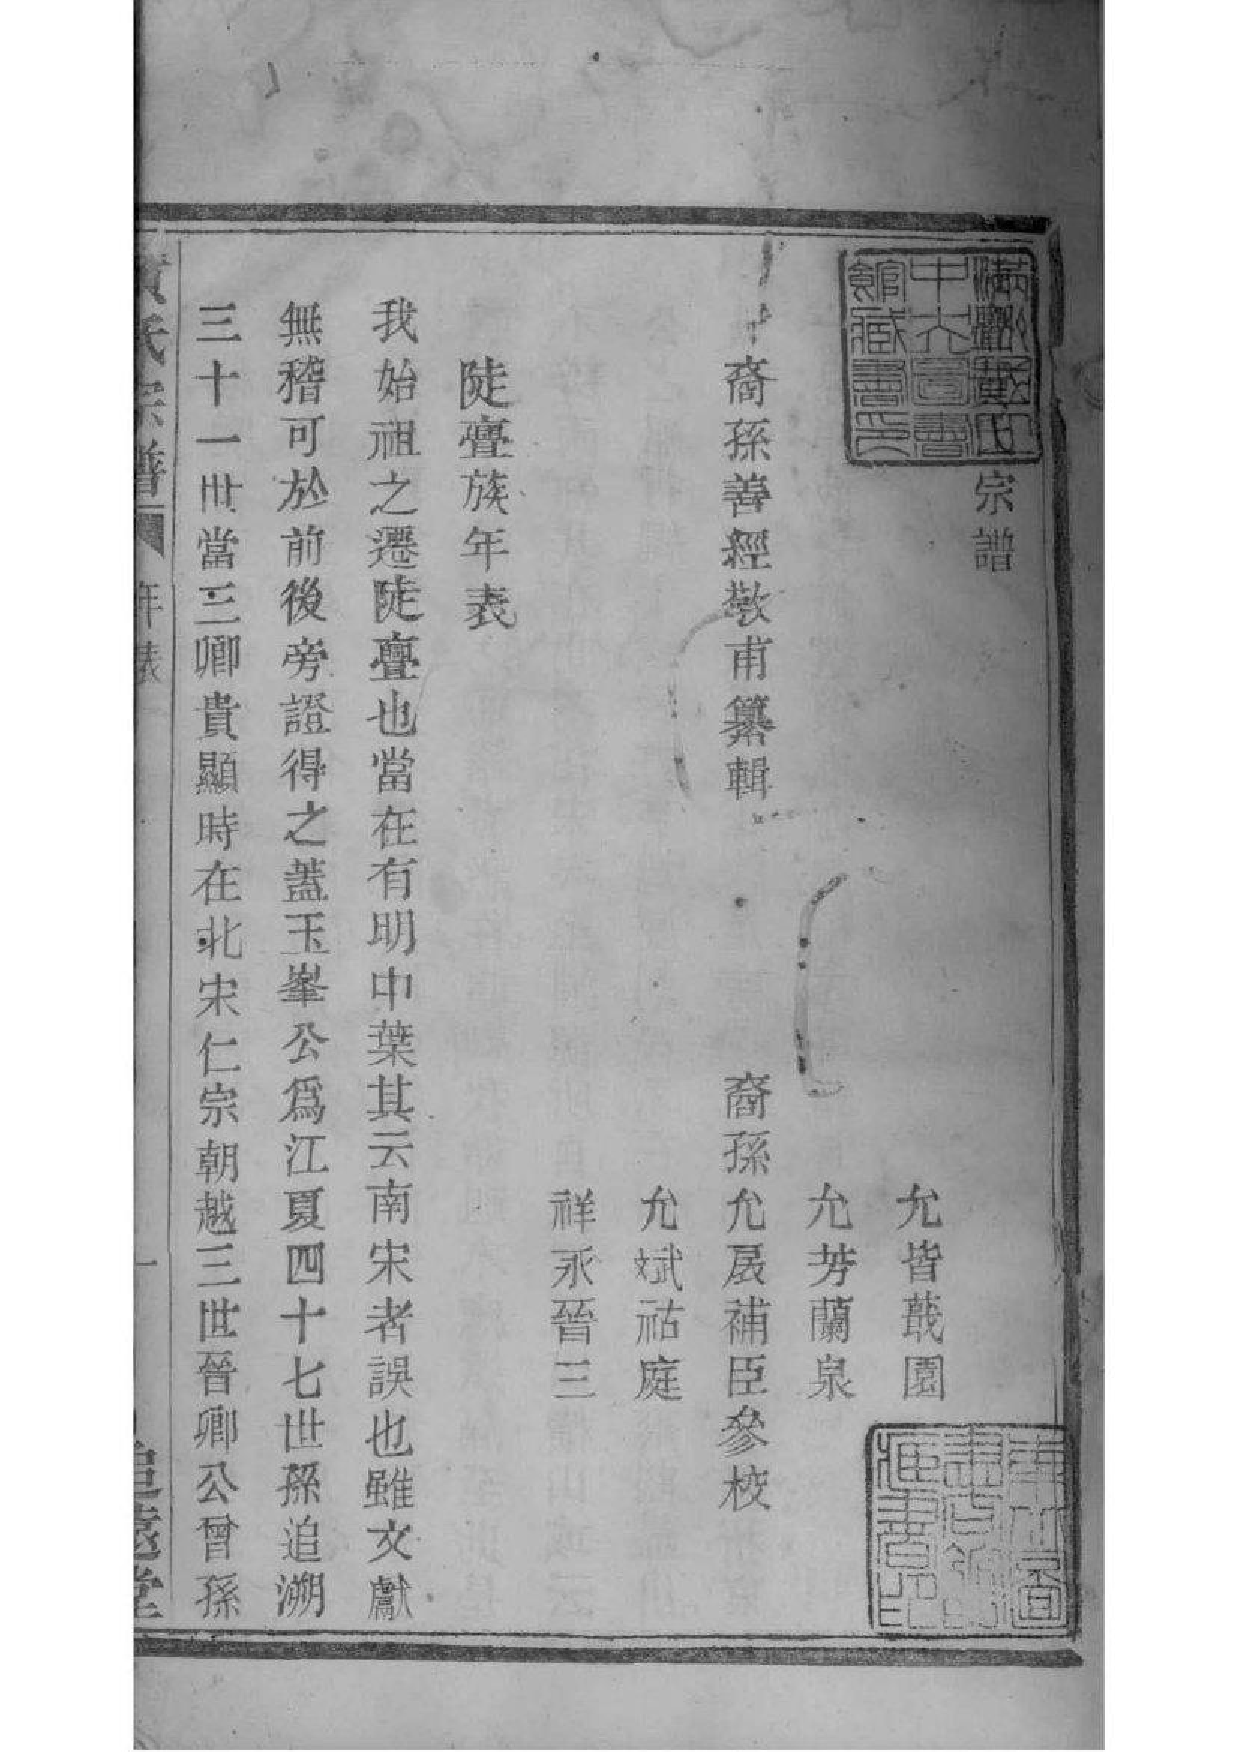 黃氏宗譜
允皆蕺園
允芳蘭泉
裔孫善經敬甫纂輯 裔孫允扆補臣參校
允斌祜庭
祥永晉三
陡亹族年表
我始祖之遷陡亹也當在有明中葉其云南宋者誤也雖文獻
無稽可於前後旁證得之蓋玉峯公爲江夏四十七世孫追溯
三十一世當三卿貴顯時在北宋仁宗朝越三世晉卿公曾孫
黃氏宗譜 年表 一 追遠堂